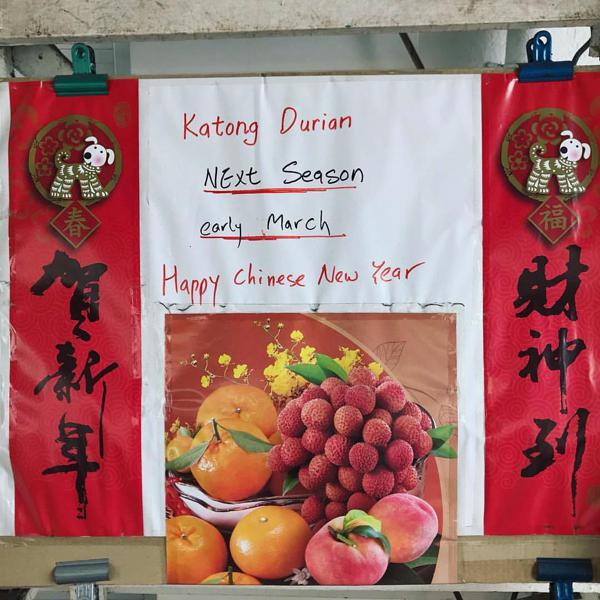 Katong Durian
NExt Season
early March
Happy Chinese New Year
春
贺新年
福
财神到